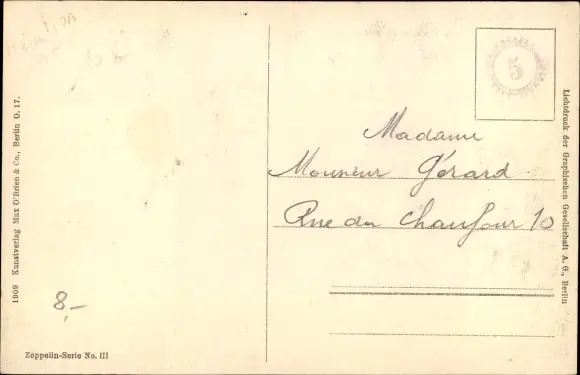 1909 Kunstverlag Max O'Brien & Co., Berlin O. 17.
8,-
Zeppelin-Serie No. III
5
Madame
Monsieur Gérard
Rue du Chaufour 10
Lichtdruck der Graphischen Gesellschaft A. G., Berlin